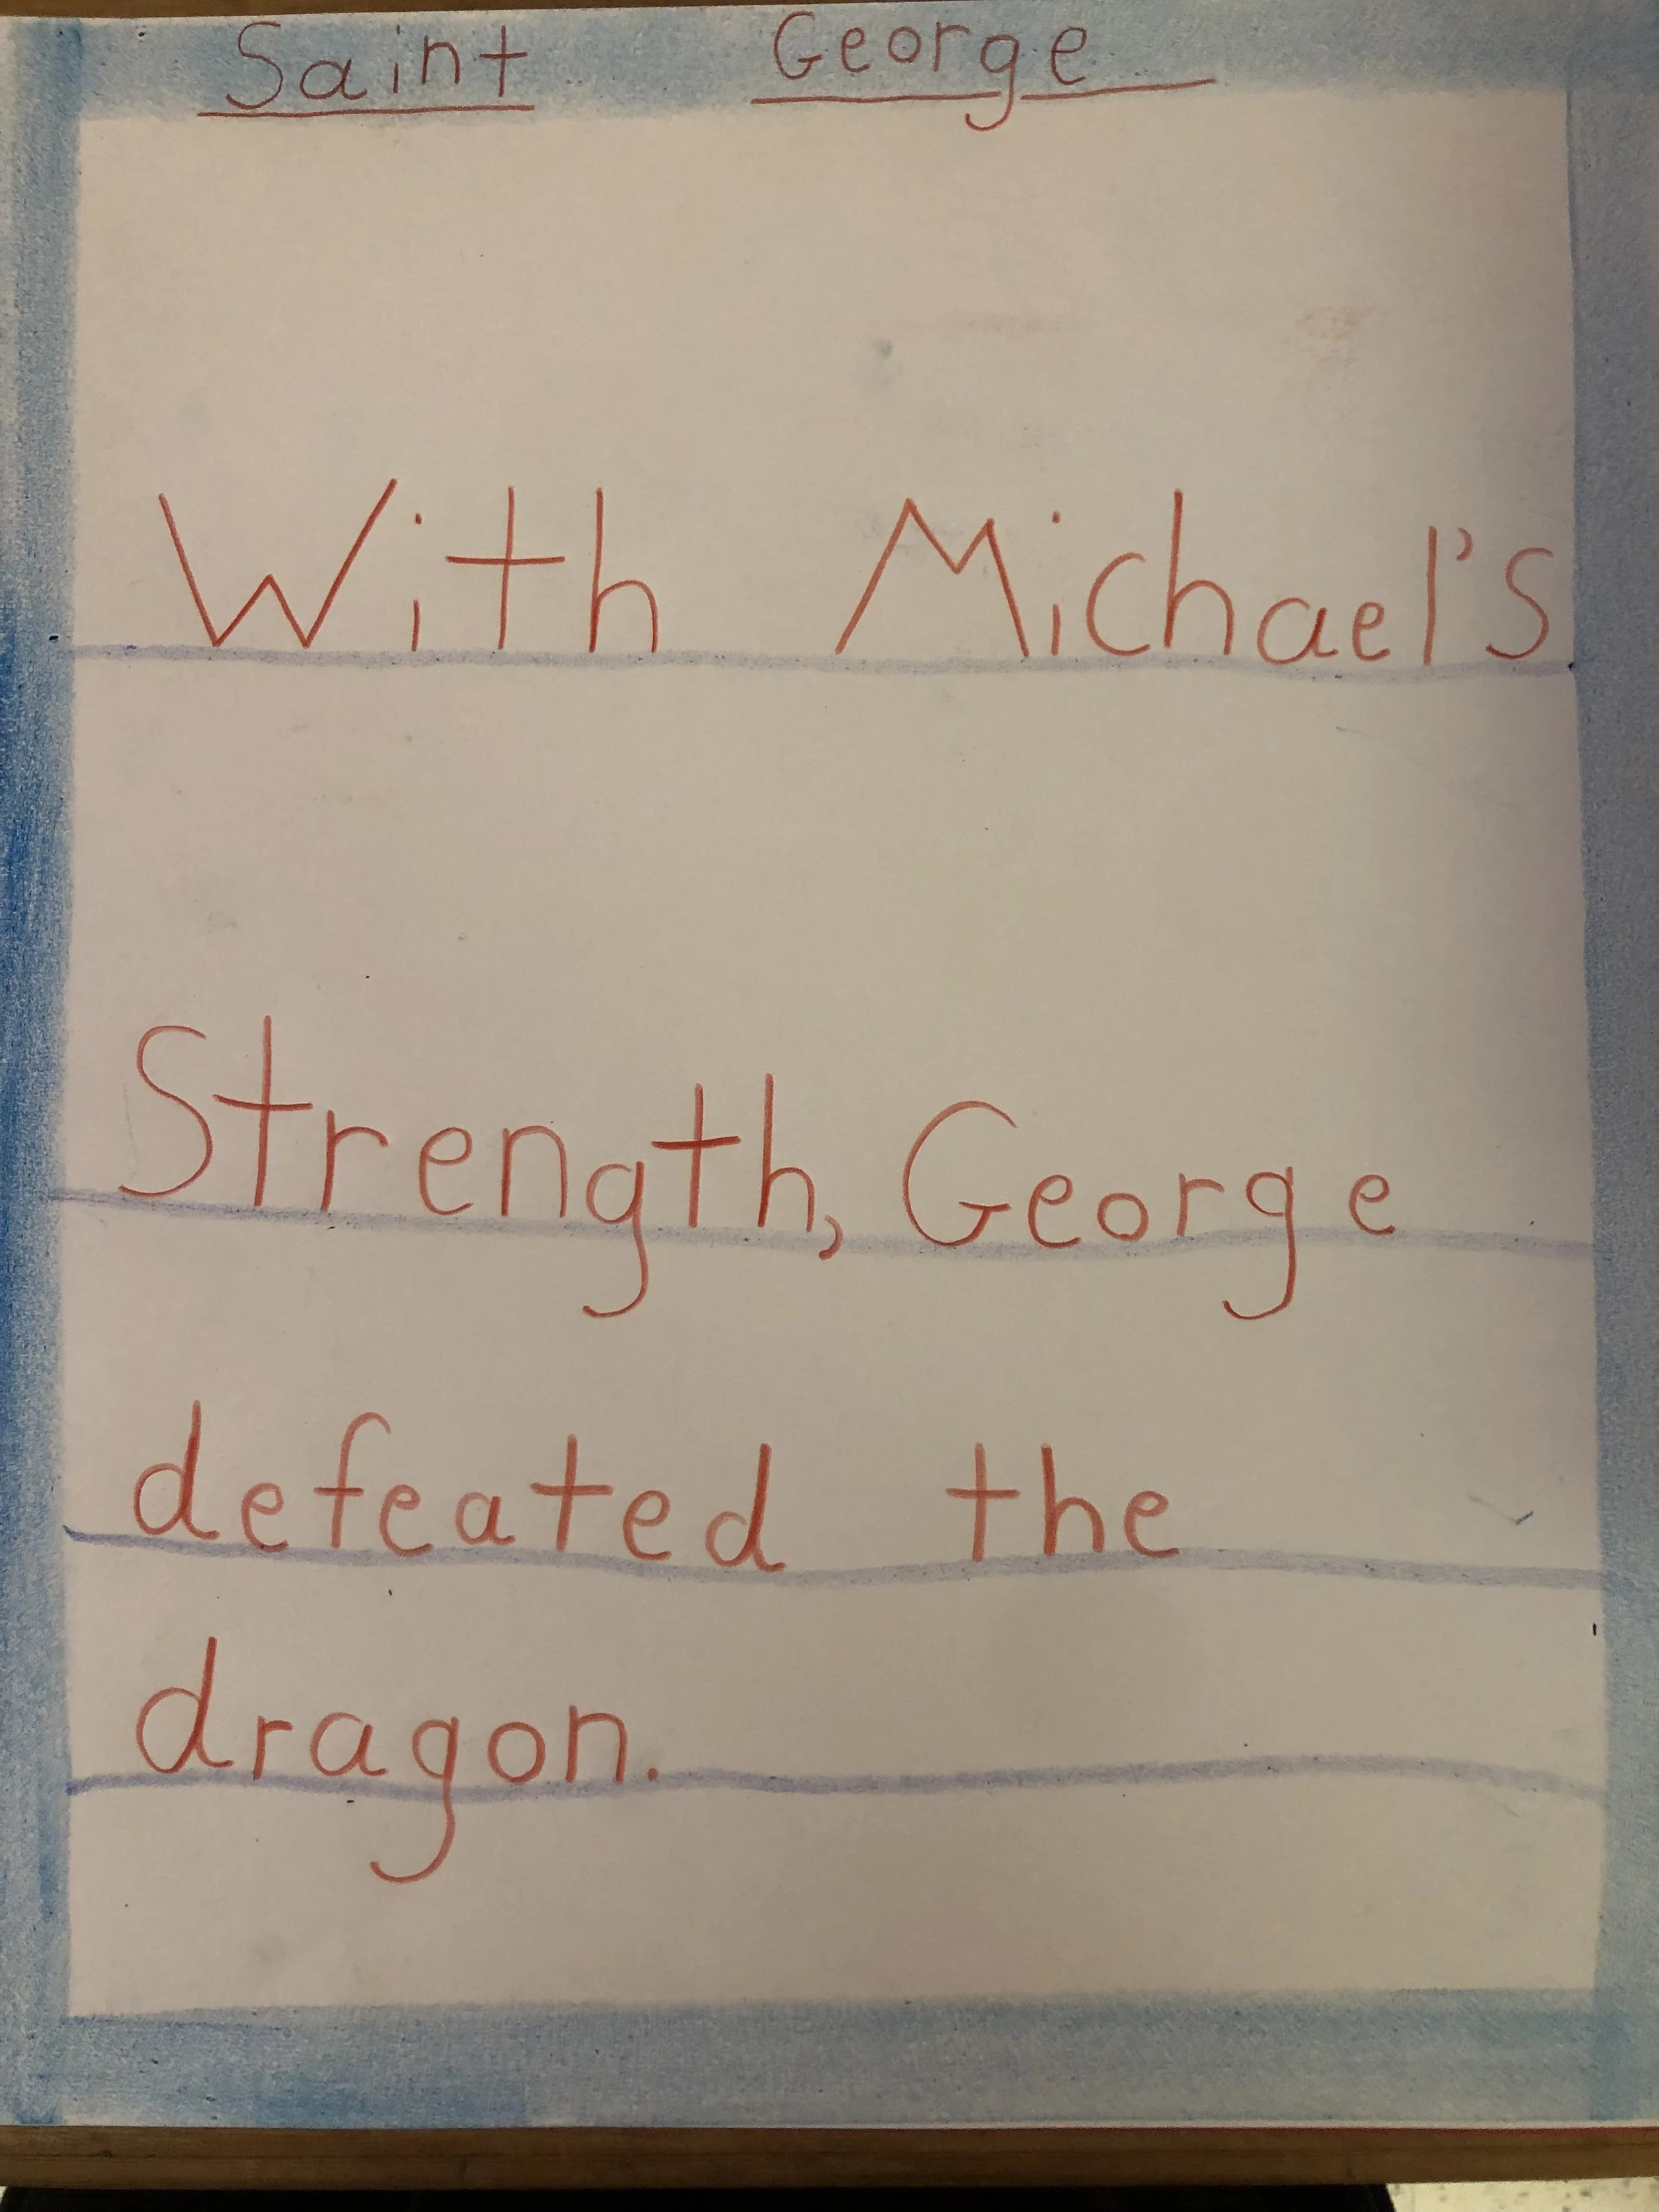 Saint George
With Michael's
Strength, George
defeated the
dragon.